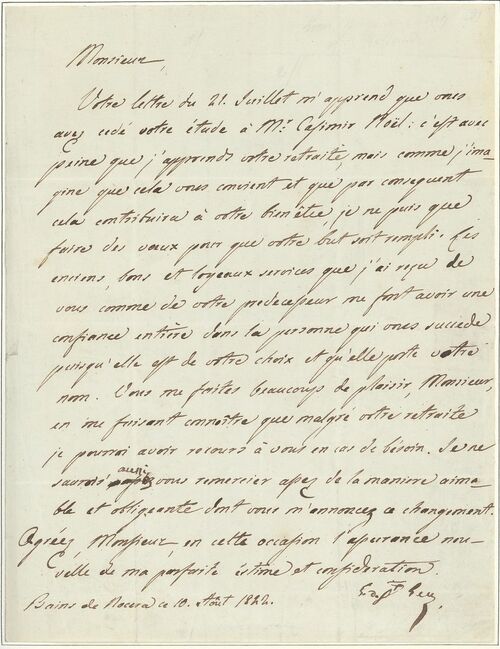 Monsieur,
Votre lettre du 21. Juillet m'apprend que vous
avez cedé votre étude à Mr. Casimir Noël: c'est avec
peine que j'apprends votre retraite, mais comme j'ima-
gine que cela vous convient et que par consequent
cela contribuira à votre bien être je ne puis que
faire des vœux pour que votre but soit rempli. Les
anciens, bons et loyeaux services que j'ai reçu de
vous comme de votre predecesseur me font avoir une
confiance entière dans la personne qui vous succede
puisqu'elle est de votre choix et qu'elle porte votre
nom. Vous me faites beaucoups de plaisir, Monsieur,
en me faisant connoître que malgré votre rétraite
je pourroi avoir recours à vous en cas de besoin. Je ne
saurois aussi vous remercier assez de la manière aima-
ble et obligeante dont vous m'annoncez ce changement.
Agréez, Monsieur, en cette occasion l'assurance nou-
velle de ma parfaite éstime et consideration.
Bains de Nocera ce 10. Août 1822.